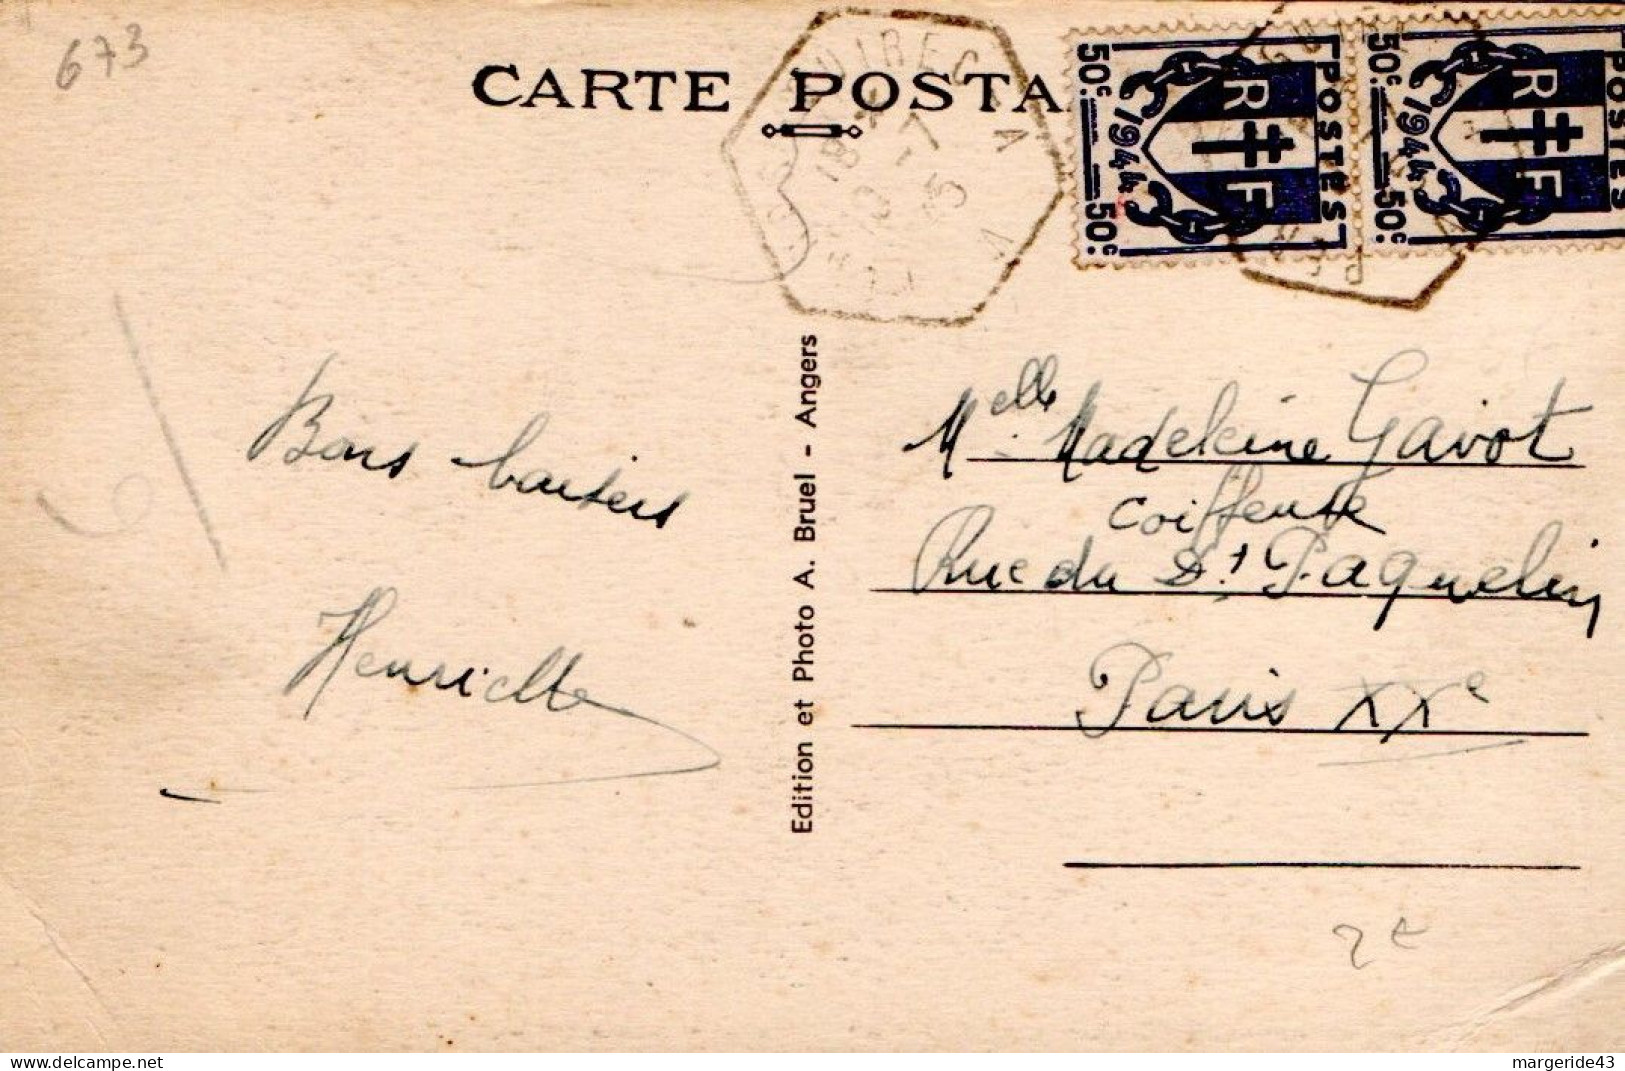 673
CARTE POSTA
50c 1944 50c
RF
POSTES
50c 1944 50c
RF
POSTES
18
-7
45
Bons baisers
Henriette
Edition et Photo A. Bruel - Angers
Melle Madeleine Gavot
Coiffeuse
Rue du Dt Paquelin
Paris XXe
2€
margeride43